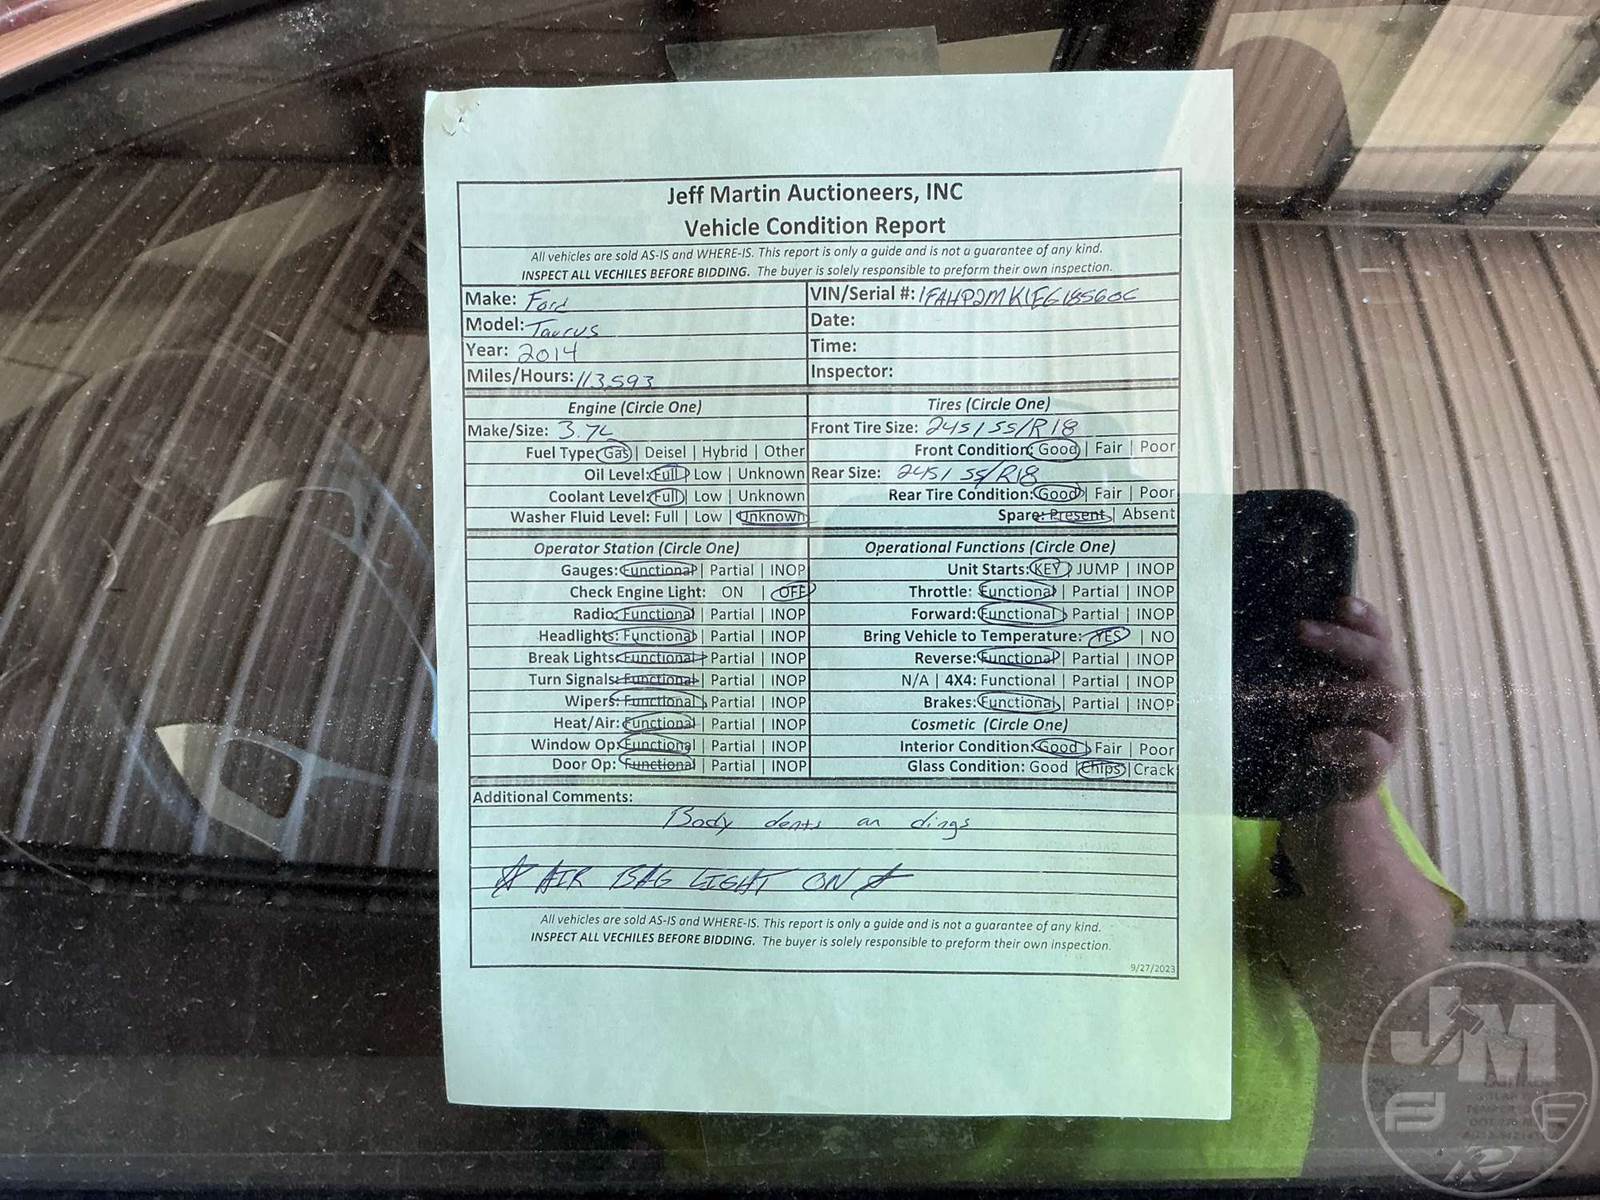 Jeff Martin Auctioneers, INC
Vehicle Condition Report
All vehicles are sold AS-IS and WHERE-IS. This report is only a guide and is not a guarantee of any kind.
INSPECT ALL VECHILES BEFORE BIDDING. The buyer is solely responsible to preform their own inspection.
Make: Ford
VIN/Serial #:
Model: Taurus
Date:
Year: 2014
Time:
Miles/Hours: 113,593
Inspector:
Engine (Circle One)
Tires (Circle One)
Make/Size: 3.7L
Front Tire Size: 245/55/R18
Fuel Type: Gas | Deisel | Hybrid | Other
Front Condition: Good | Fair | Poor
Oil Level: Full | Low | Unknown
Rear Size: 245/55/R18
Coolant Level: Full | Low | Unknown
Rear Tire Condition: Good | Fair | Poor
Washer Fluid Level: Full | Low | Unknown
Spare: Present | Absent
Operator Station (Circle One)
Operational Functions (Circle One)
Gauges: Functional | Partial | INOP
Unit Starts: KEY | JUMP | INOP
Check Engine Light: ON | OFF
Throttle: Functional | Partial | INOP
Radio: Functional | Partial | INOP
Forward: Functional | Partial | INOP
Headlights: Functional | Partial | INOP
Bring Vehicle to Temperature: YES | NO
Break Lights: Functional | Partial | INOP
Reverse: Functional | Partial | INOP
Turn Signals: Functional | Partial | INOP
N/A | 4X4: Functional | Partial | INOP
Wipers: Functional | Partial | INOP
Brakes: Functional | Partial | INOP
Heat/Air: Functional | Partial | INOP
Cosmetic (Circle One)
Window Op: Functional | Partial | INOP
Interior Condition: Good | Fair | Poor
Door Op: Functional | Partial | INOP
Glass Condition: Good | Chips | Crack
Additional Comments:
Body dents an dings
☆ AIR BAG LIGHT ON ☆
All vehicles are sold AS-IS and WHERE-IS. This report is only a guide and is not a guarantee of any kind.
INSPECT ALL VECHILES BEFORE BIDDING. The buyer is solely responsible to preform their own inspection.
9/27/2023
JM